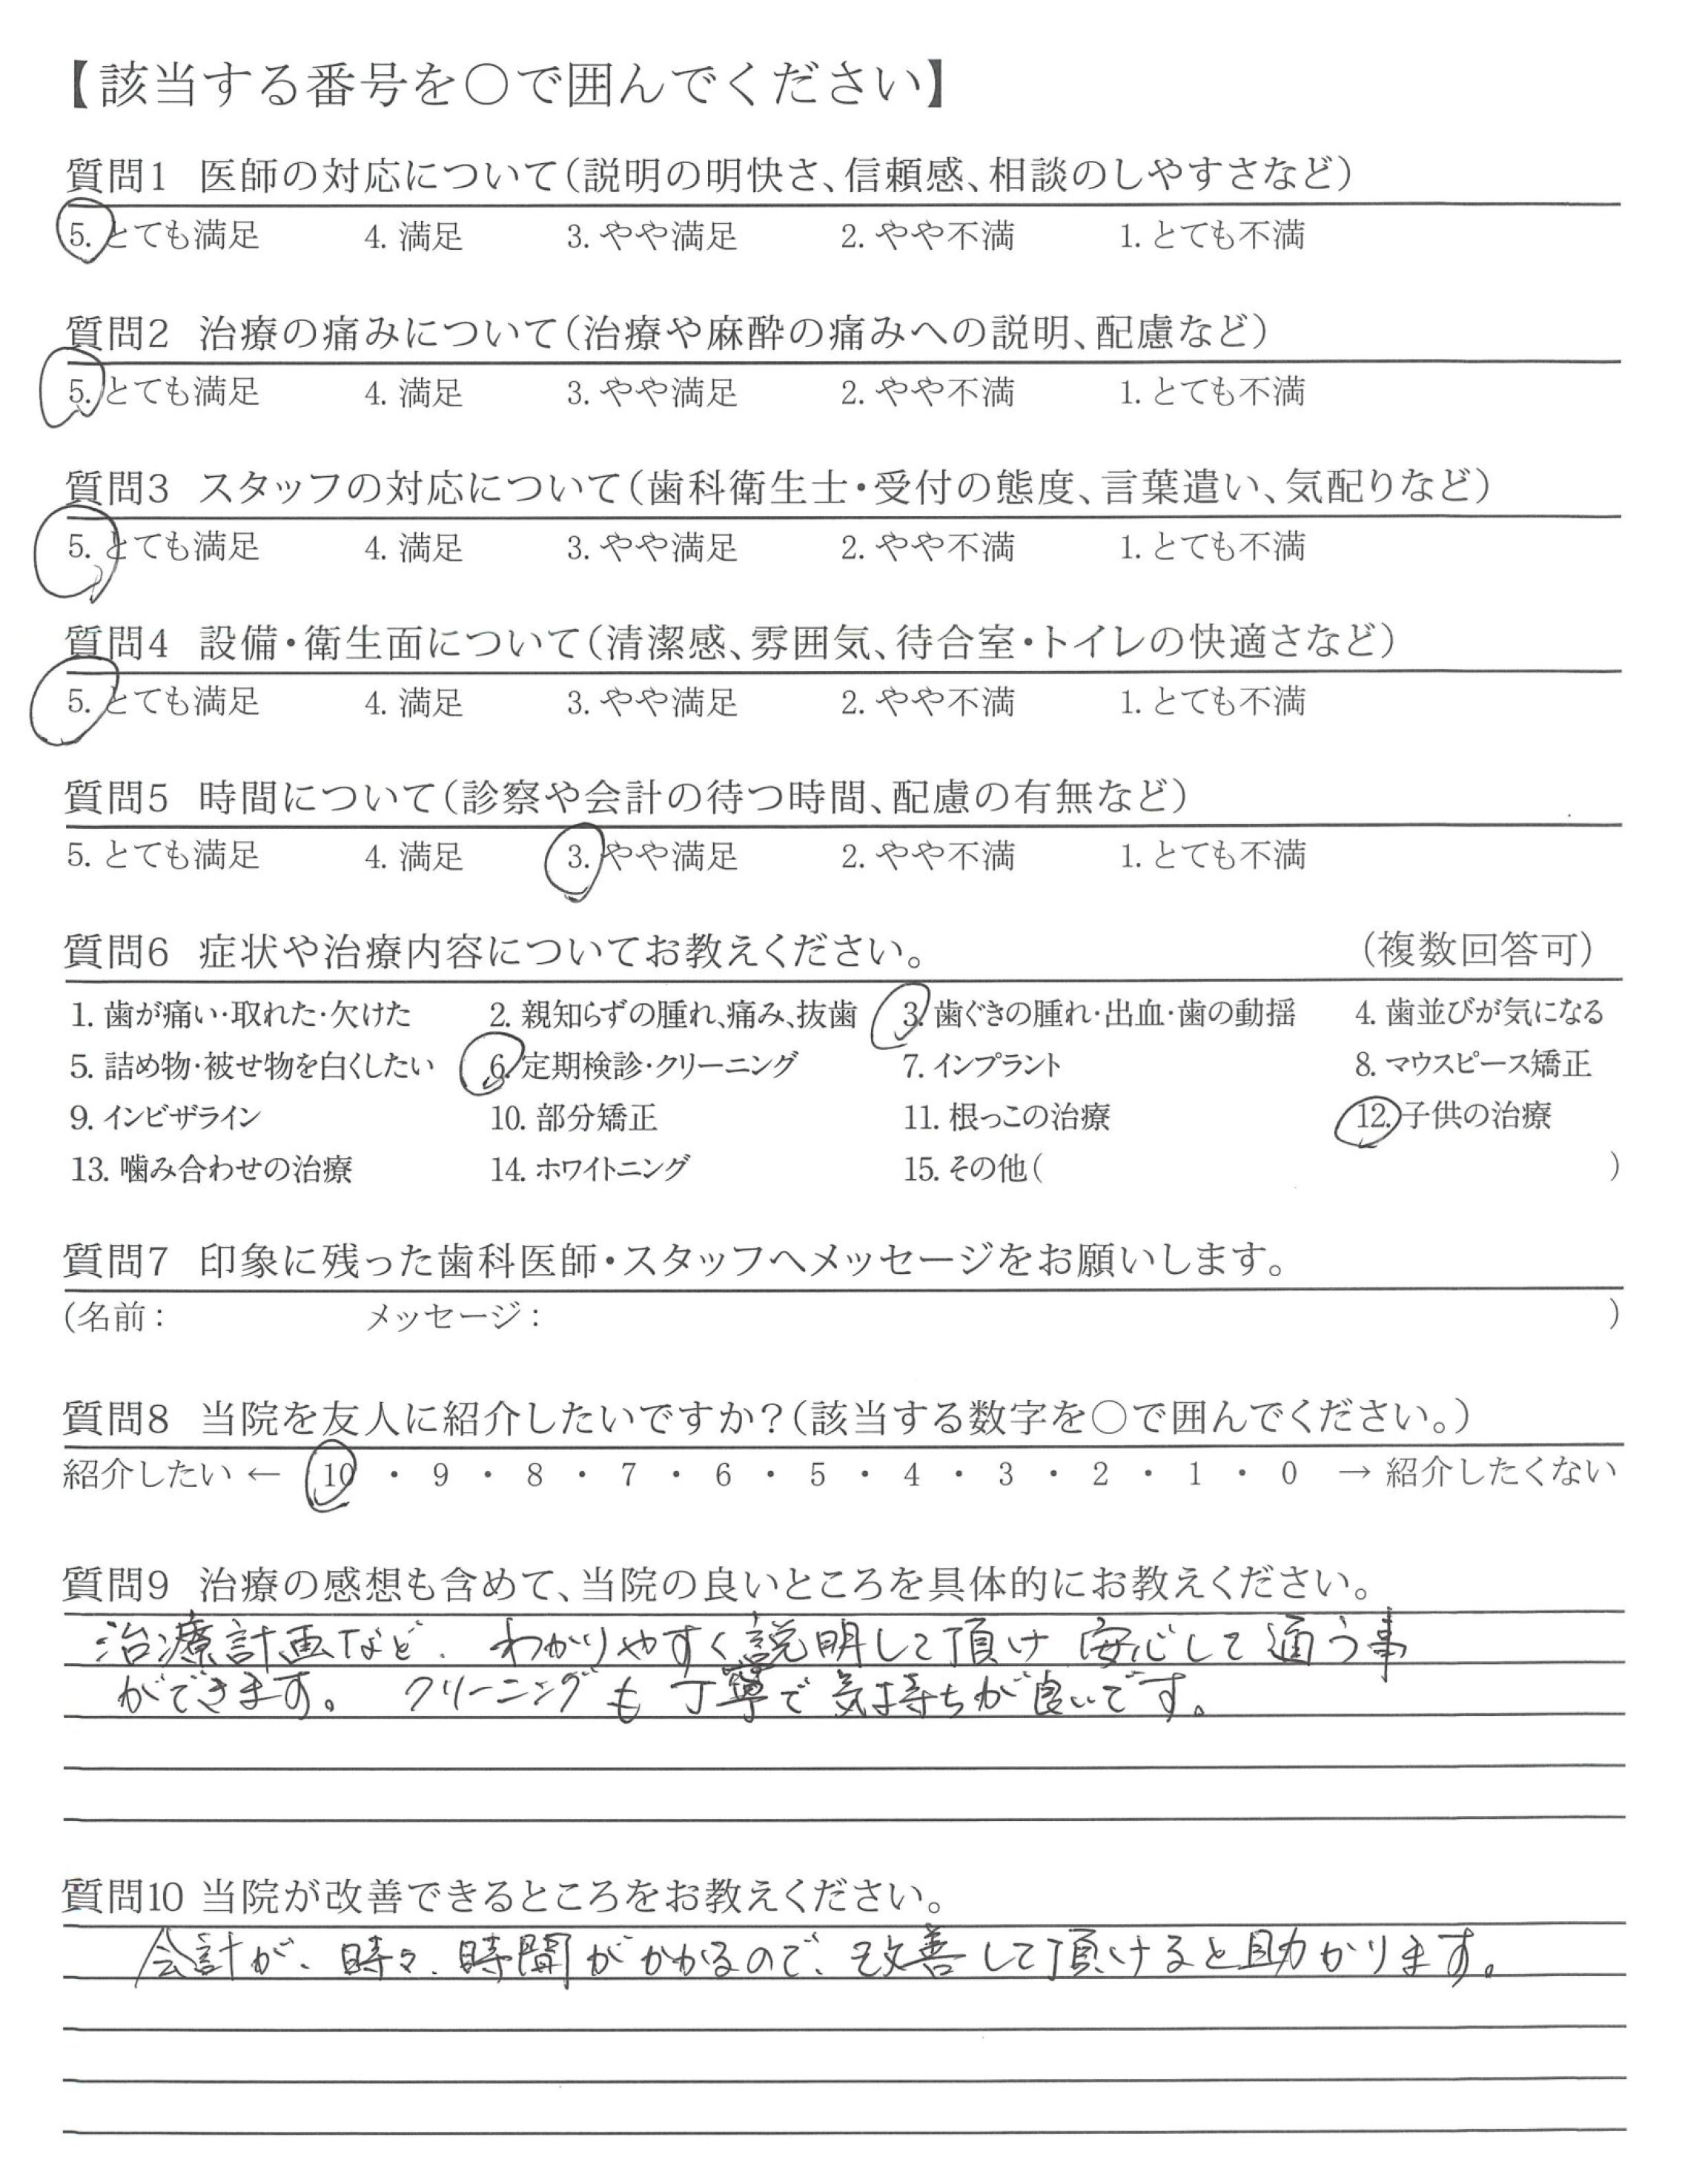 【該当する番号を○で囲んでください】
質問1 医師の対応について(説明の明快さ、信頼感、相談のしやすさなど)
5. とても満足 4. 満足 3. やや満足 2. やや不満 1. とても不満
質問2 治療の痛みについて(治療や麻酔の痛みへの説明、配慮など)
5. とても満足 4. 満足 3. やや満足 2. やや不満 1. とても不満
質問3 スタッフの対応について(歯科衛生士・受付の態度、言葉遣い、気配りなど)
5. とても満足 4. 満足 3. やや満足 2. やや不満 1. とても不満
質問4 設備・衛生面について(清潔感、雰囲気、待合室・トイレの快適さなど)
5. とても満足 4. 満足 3. やや満足 2. やや不満 1. とても不満
質問5 時間について(診察や会計の待つ時間、配慮の有無など)
5. とても満足 4. 満足 3. やや満足 2. やや不満 1. とても不満
質問6 症状や治療内容についてお教えください。 (複数回答可)
1. 歯が痛い・取れた・欠けた 2. 親知らずの腫れ、痛み、抜歯 3. 歯ぐきの腫れ・出血・歯の動揺 4. 歯並びが気になる
5. 詰め物・被せ物を白くしたい 6. 定期検診・クリーニング 7. インプラント 8. マウスピース矯正
9. インビザライン 10. 部分矯正 11. 根っこの治療 12. 子供の治療
13. 噛み合わせの治療 14. ホワイトニング 15. その他( )
質問7 印象に残った歯科医師・スタッフへメッセージをお願いします。
(名前: メッセージ: )
質問8 当院を友人に紹介したいですか?(該当する数字を○で囲んでください。)
紹介したい ← 10 ・ 9 ・ 8 ・ 7 ・ 6 ・ 5 ・ 4 ・ 3 ・ 2 ・ 1 ・ 0 → 紹介したくない
質問9 治療の感想も含めて、当院の良いところを具体的にお教えください。
治療計画など、わかりやすく説明して頂け 安心して通う事
ができます。 クリーニングも丁寧で気持ちが良いです。
質問10 当院が改善できるところをお教えください。
会計が、時々、時間がかかるので、改善して頂けると助かります。